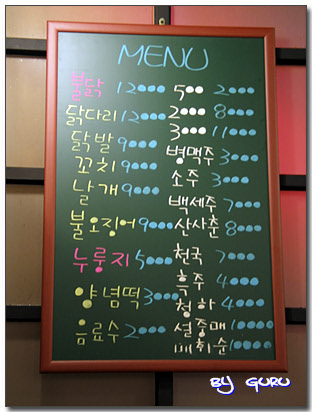 MENU
불닭 12000
닭다리 12000
닭발 9000
꼬치 9000
날개 9000
불오징어 9000
누룽지 5000
양념떡 3000
음료수 2000
500 2000
2000 8000
3000 11000
병맥주 3000
소주 3000
백세주 7000
산사춘 8000
천국 7000
흑주 4000
청하 4000
설중매 10000
매취순 10000
BY GURU